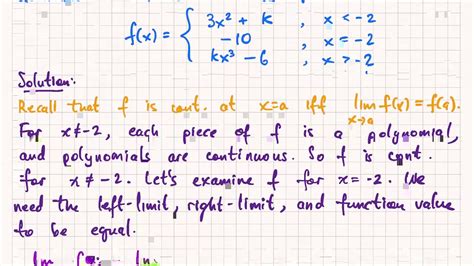 f(x) = { 3x² + k , x < -2
-10 , x = -2
kx³ - 6 , x > -2
Solution:
Recall that f is cont. at x=a iff lim f(x) = f(a).
x→a
For x≠-2, each piece of f is a polynomial,
and polynomials are continuous. So f is cont.
for x ≠ -2. Let's examine f for x = -2. We
need the left-limit, right-limit, and function value
to be equal.